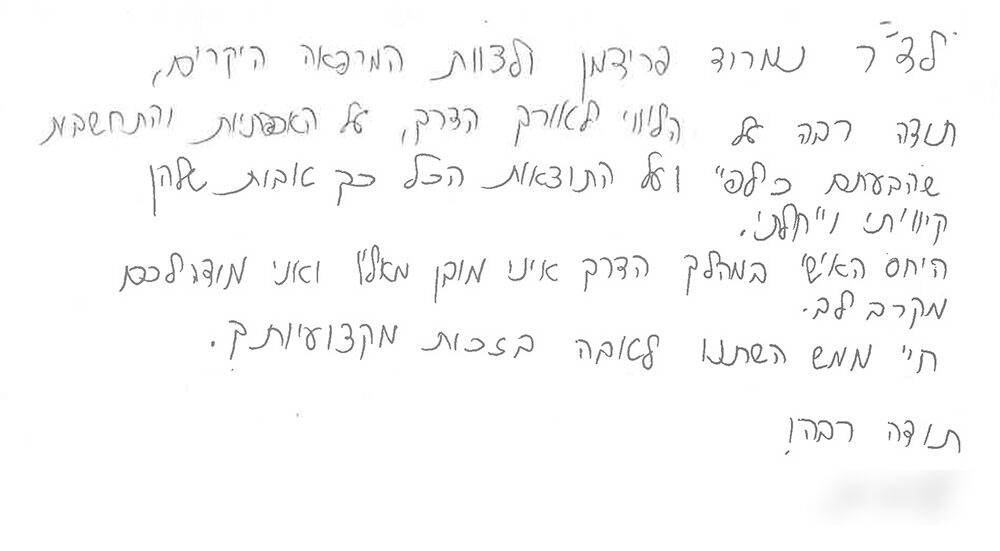 לד"ר נמרוד פרידמן ולצוות המרפאה היקרים,
תודה רבה על הליווי לאורך הדרך, על האכפתיות והתחשבות
שהבעתם כלפיי ועל התוצאות הכל כך טובות שלהן
קיוויתי וייחלתי.
היחס האישי במהלך הדרך אינו מובן מאליו ואני מודה לכם
מקרב לב.
חיי ממש השתנו לטובה בזכות מקצועיותך.
תודה רבה!